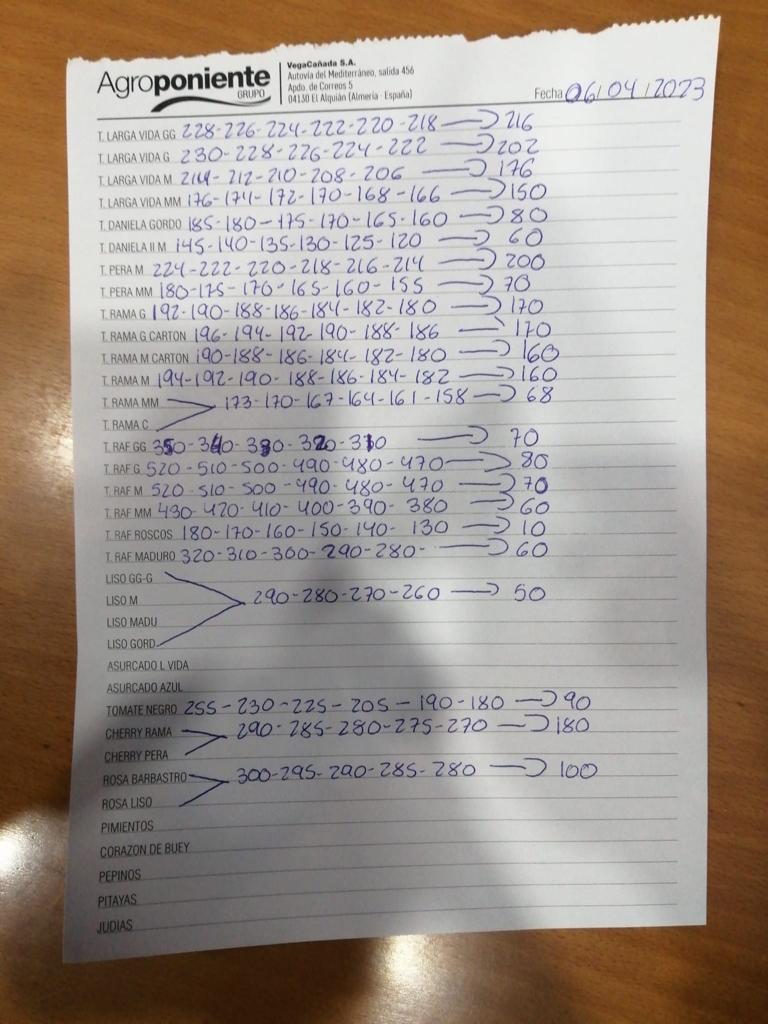 Agroponiente
GRUPO
VegaCañada S.A.
Autovía del Mediterráneo, salida 456
Apdo. de Correos 5
04130 El Alquián (Almería - España)
Fecha 06/04/2023
T. LARGA VIDA GG 228-226-224-222-220-218 → 216
T. LARGA VIDA G 230-228-226-224-222 → 202
T. LARGA VIDA M 214-212-210-208-206 → 176
T. LARGA VIDA MM 176-174-172-170-168-166 → 150
T. DANIELA GORDO 185-180-175-170-165-160 → 80
T. DANIELA II M 145-140-135-130-125-120 → 60
T. PERA M 224-222-220-218-216-214 → 200
T. PERA MM 180-175-170-165-160-155 → 70
T. RAMA G 192-190-188-186-184-182-180 → 170
T. RAMA G CARTON 196-194-192-190-188-186 → 170
T. RAMA M CARTON 190-188-186-184-182-180 → 160
T. RAMA M 194-192-190-188-186-184-182 → 160
T. RAMA MM 173-170-167-164-161-158 → 68
T. RAMA C
T. RAF GG 350-340-330-320-310 → 70
T. RAF G 520-510-500-490-480-470 → 80
T. RAF M 520-510-500-490-480-470 → 70
T. RAF MM 430-420-410-400-390-380 → 60
T. RAF ROSCOS 180-170-160-150-140-130 → 10
T. RAF MADURO 320-310-300-290-280- → 60
LISO GG-G
LISO M 290-280-270-260 → 50
LISO MADU
LISO GORD
ASURCADO L VIDA
ASURCADO AZUL
TOMATE NEGRO 255-230-225-205-190-180 → 90
CHERRY RAMA 290-285-280-275-270 → 180
CHERRY PERA
ROSA BARBASTRO 300-295-290-285-280 → 100
ROSA LISO
PIMIENTOS
CORAZON DE BUEY
PEPINOS
PITAYAS
JUDIAS